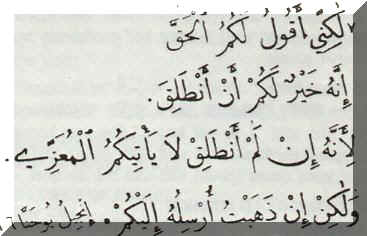 ٧ لَٰكِنِّي أَقُولُ لَكُمُ ٱلْحَقَّ
إِنَّهُ خَيْرٌ لَكُمْ أَنْ أَنْطَلِقَ.
لِأَنَّهُ إِنْ لَمْ أَنْطَلِقْ لَا يَأْتِيكُمُ ٱلْمُعَزِّي.
وَلَٰكِنْ إِنْ ذَهَبْتُ أُرْسِلُهُ إِلَيْكُمْ. إنجيل يوحنا